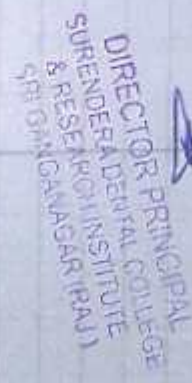 DIRECTOR PRINCIPAL
SURENDERA DENTAL COLLEGE
& RESEARCH INSTITUTE
SRI GANGANAGAR (RAJ.)